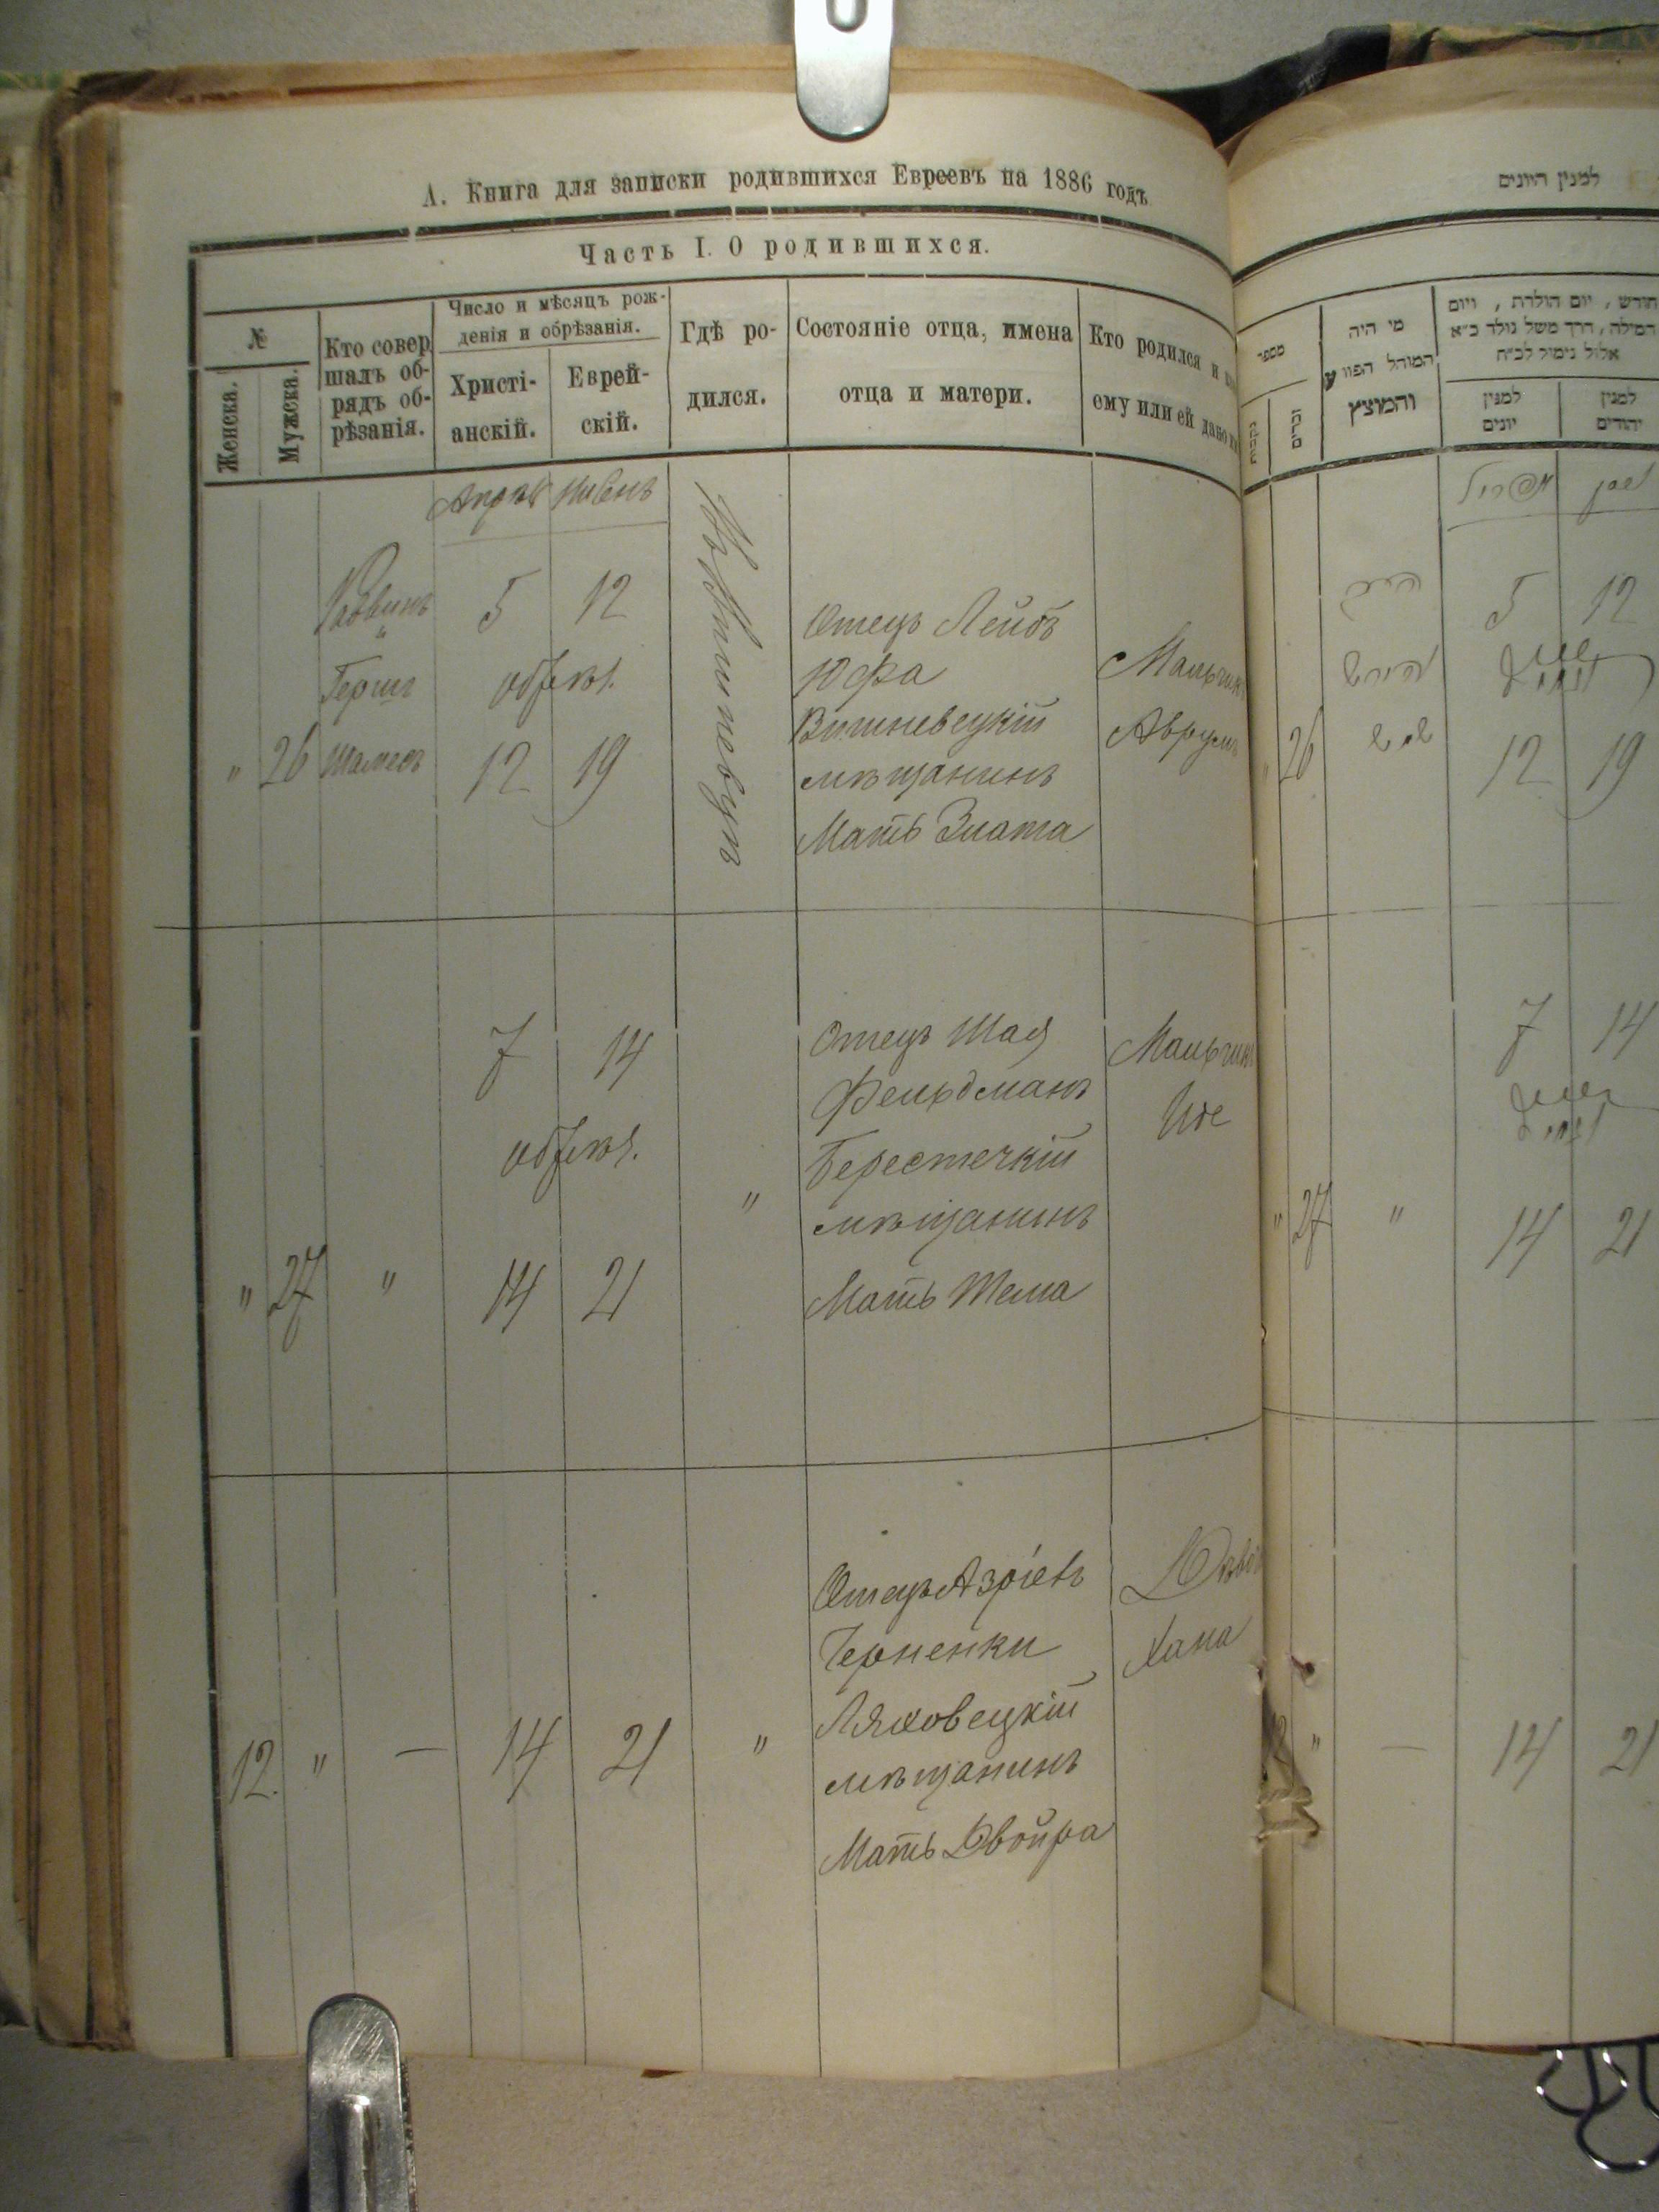 А. Книга для записки родившихся Евреевъ на 1886 годъ
Часть I. О родившихся.
№
Женска.
Мужска.
Кто совер
шалъ об-
рядъ об-
рѣзанія.
Число и мѣсяцъ рож-
денія и обрѣзанія.
Христі-
анскій.
Еврей-
скій.
Гдѣ ро-
дился.
Состояніе отца, имена
отца и матери.
Кто родился и
ему или ей дано
Апрѣль Нисенъ
" 26
Раввинъ
Герш
Шамесъ
5 12
обрѣз.
12 19
Отецъ Лейбъ
Юфа
Вишневецкій
мѣщанинъ
Мать Злата
Мальчикъ
Аврумъ
" 27 "
7 14
обрѣз.
14 21
"
Отецъ Шая
Фельдманъ
Берестечкій
мѣщанинъ
Мать Тема
Мальчикъ
12. " — 14 21 "
Отецъ Азріель
Черненки
Ляховецкій
мѣщанинъ
Мать Двойра
Хана
למנין היונים
מספר
נקבות
זכרים
מי היה
המוהל הפורע
והמוצץ
חודש, יום הולדת, ויום
המילה, דרך משל נולד כ״א
אלול נימול לכ״ח
למנין
יונים
למנין
יהודים
אפריל
ניסן
26
5 12
12 19
7 14
" 27 "
14 21
" — 14 21